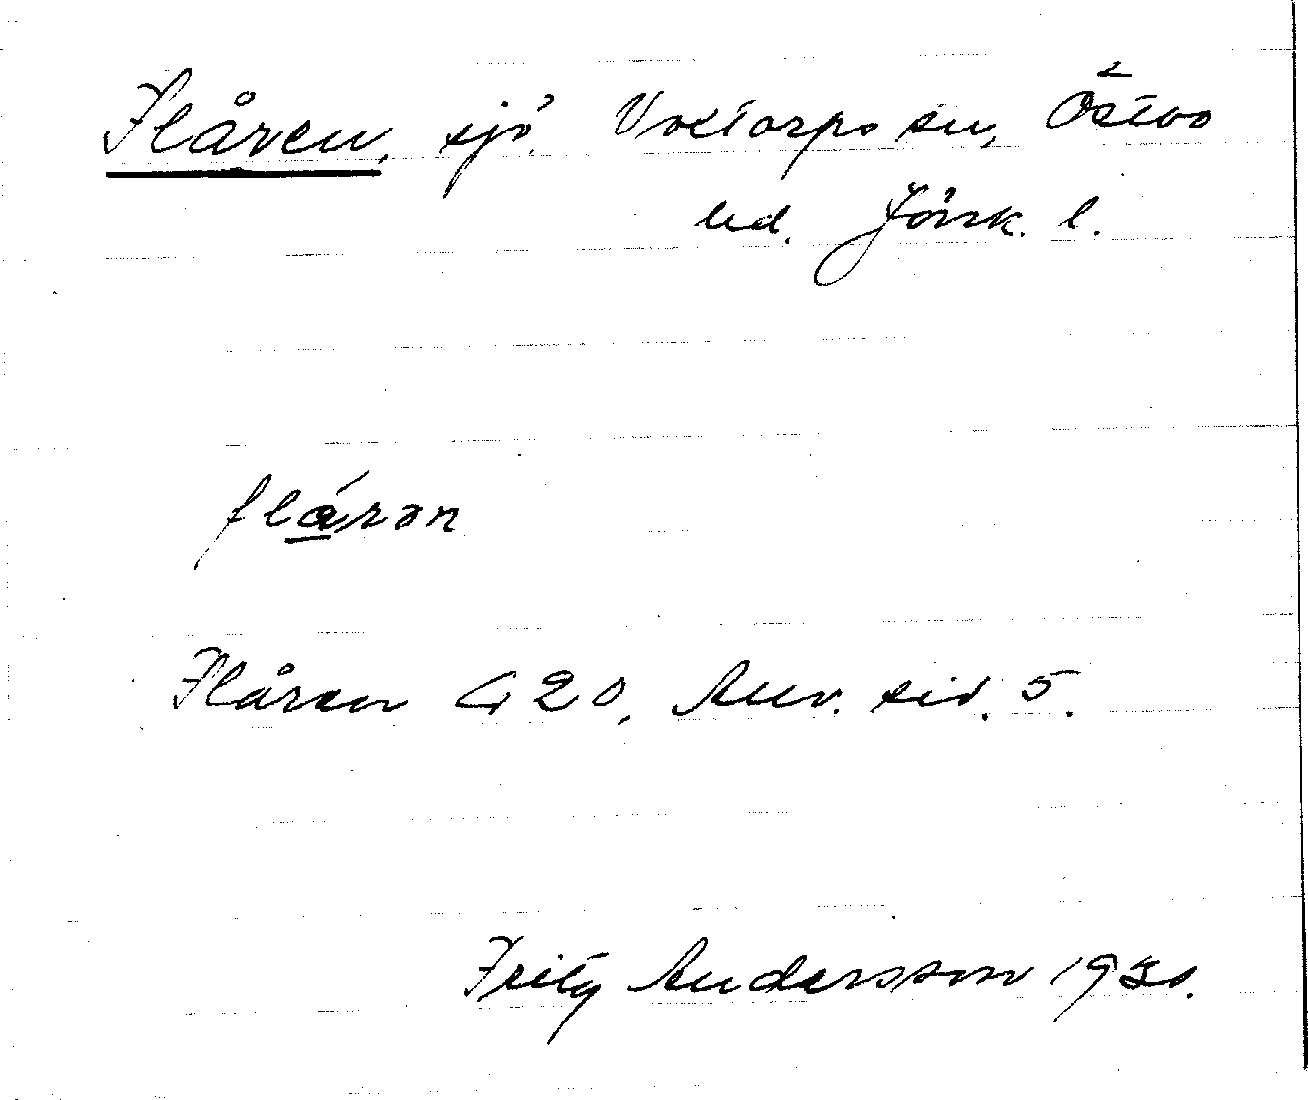 Flåren, sjö. Voxtorps sn, Östbo
hd. Jönk. l.
flárən
Flåren G 20, Anv. sid. 5.
Fritz Andersson 1930.